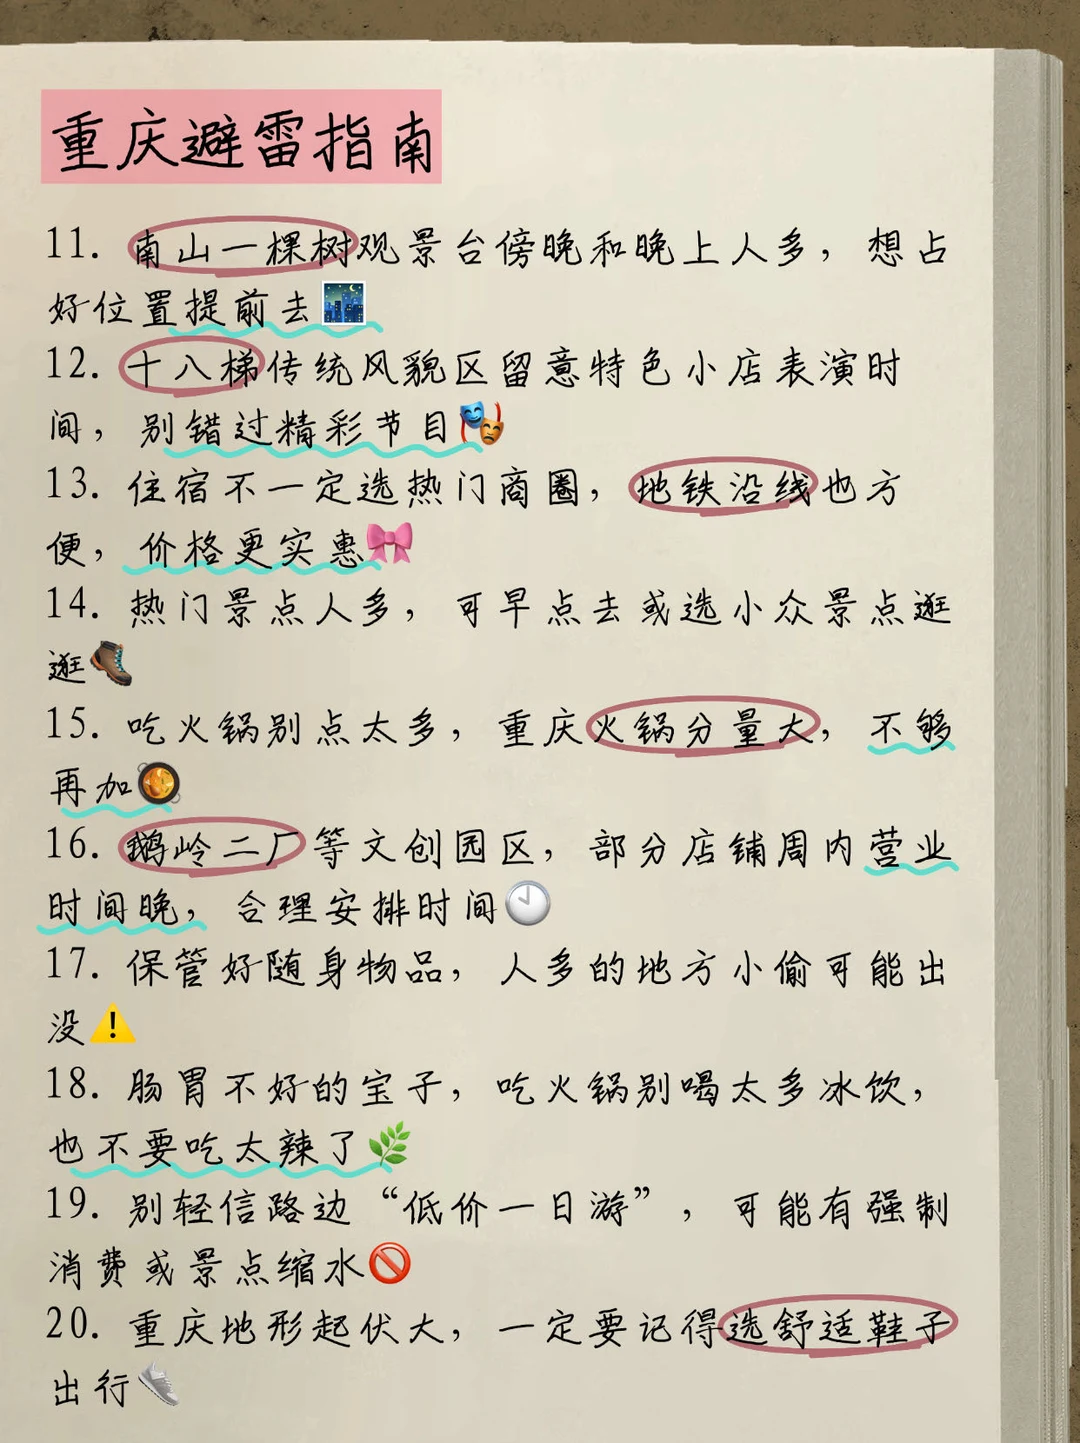 重庆避雷指南
11. 南山一棵树观景台傍晚和晚上人多，想占
好位置提前去🌃
12. 十八梯传统风貌区留意特色小店表演时
间，别错过精彩节目🎭
13. 住宿不一定选热门商圈，地铁沿线也方
便，价格更实惠🎀
14. 热门景点人多，可早点去或选小众景点逛
逛🥾
15. 吃火锅别点太多，重庆火锅分量大，不够
再加🥘
16. 鹅岭二厂等文创园区，部分店铺周内营业
时间晚，合理安排时间🕙
17. 保管好随身物品，人多的地方小偷可能出
没⚠️
18. 肠胃不好的宝子，吃火锅别喝太多冰饮，
也不要吃太辣了🌿
19. 别轻信路边“低价一日游”，可能有强制
消费或景点缩水🚫
20. 重庆地形起伏大，一定要记得选舒适鞋子
出行👟